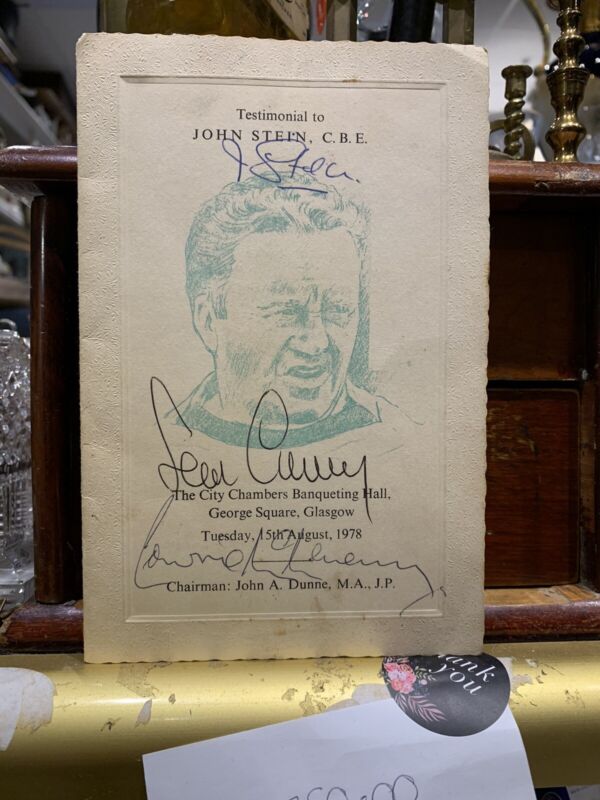 Testimonial to
JOHN STEIN, C.B.E.
J Stein.
Sean Connery
The City Chambers Banqueting Hall,
George Square, Glasgow
Tuesday, 15th August, 1978
Chairman: John A. Dunne, M.A., J.P.
Thank
you